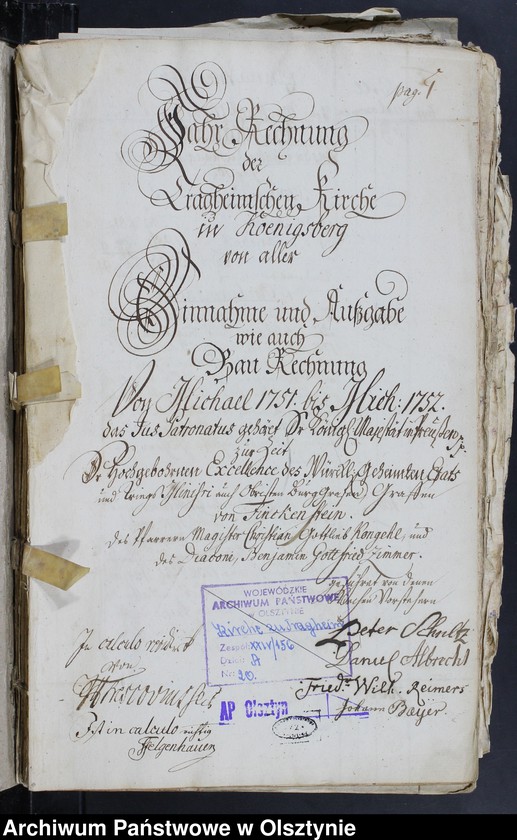 pag. 1
Jahr Rechnung
der
Tragheimschen Kirche
in Koenigsberg
von aller
Einnahme und Außgabe
wie auch
Bau Rechnung
Von Michael 1751. bis Mich: 1752.
das Jus Patronatus gehöret Sr Königl. Majestät in Preußen
zur Zeit
Sr Hochgebornen Excellence des Würckl. Geheimten Etats
und Kriegs Ministri auch Obristen Burg Grafen Grafen
von Finckenstein.
des Pfarrern Magister Christian Gottlieb Kongehl, und
des Diaconi, Benjamin Gottfried Zimmer.
geführet von denen
Kirchen Vorstehern
Peter Schultz
Daniel Albrecht
Fried. Wilh. Reimers
Johann Bayer
In calculo revidirt
von
Ist in calculo richtig
Felgenhauer
WOJEWÓDZKIE
ARCHIWUM PAŃSTWOWE
w OLSZTYNIE
Kirche zu Tragheim
Zespół XXIV/156
Dział A
Nr. 20.
AP Olsztyn
Archiwum Państwowe w Olsztynie